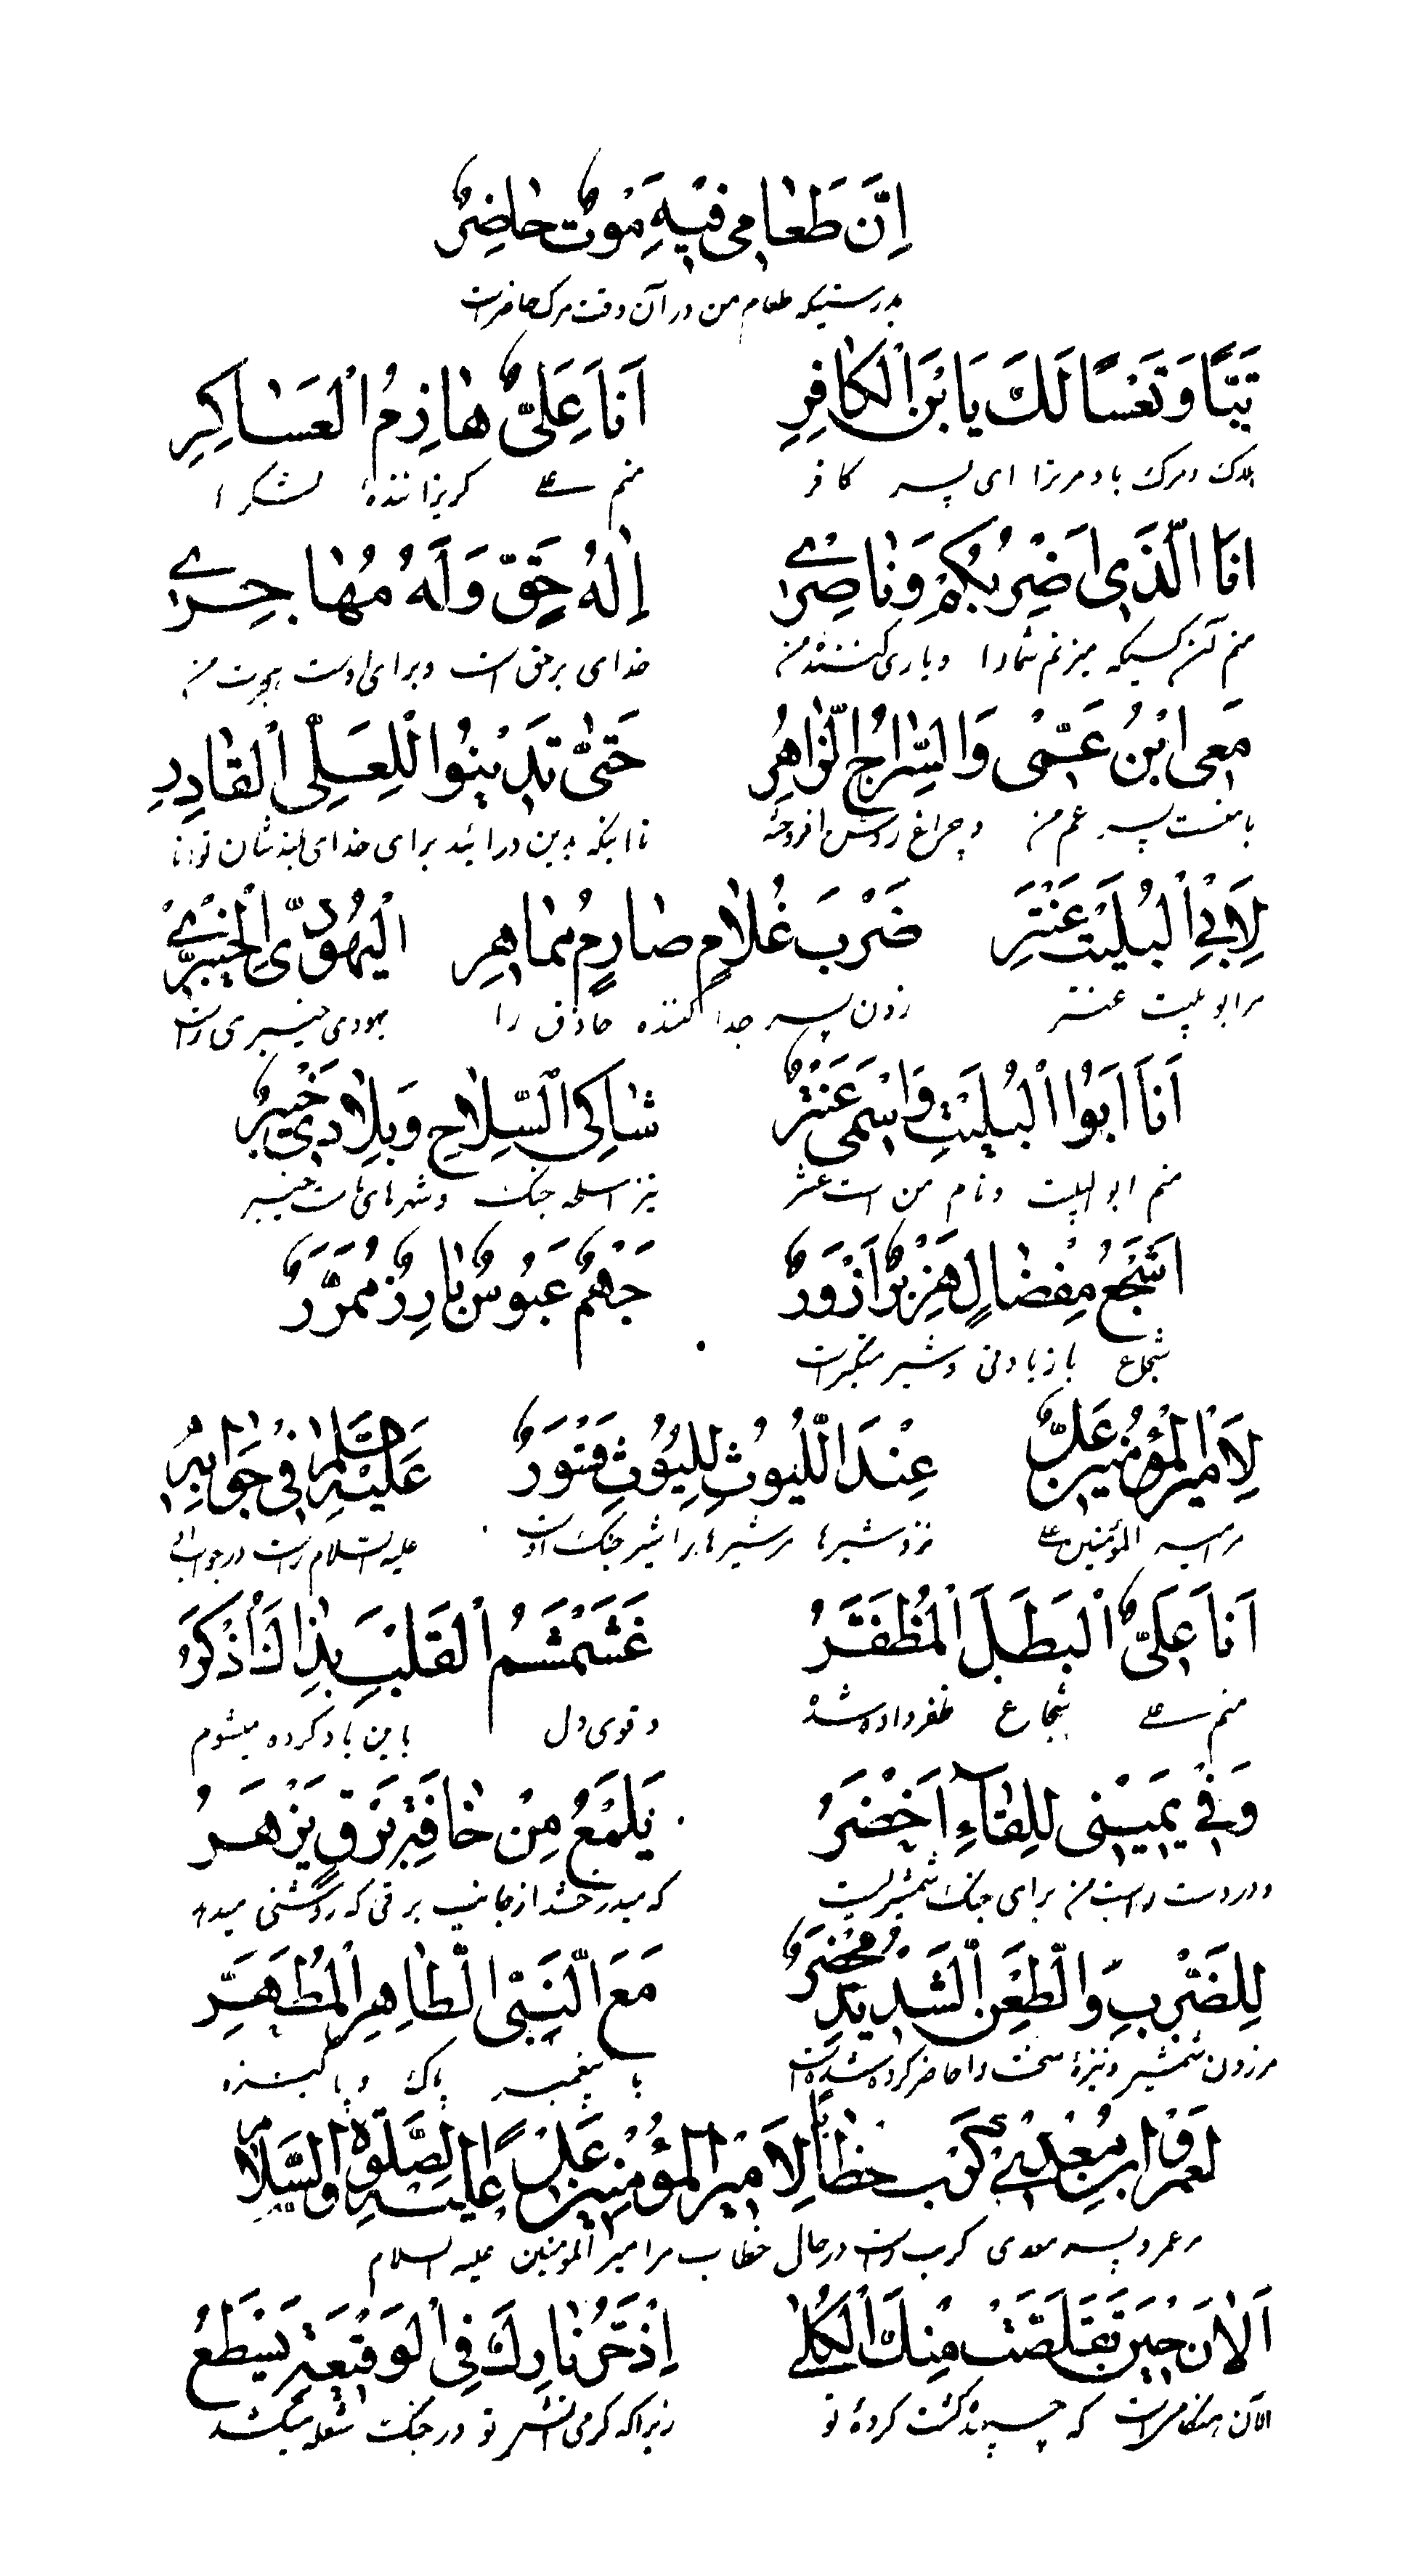 اِنَّ طَعٰامی فیهِ مَوْتٌ حٰاضِرٌ
بدرستیکه طعام من در آن وقت مرک حاضر است
تَبّاً وَ تَعْساً لَكَ يَا بْنَ الْكٰافِرِ اَنَا عَلِیٌّ هٰاذِمُ الْعَسٰاكِرِ
هلاک و مرک باد مر ترا ای پسر کافر منم علی کریزاننده لشکر را
اَنَا الَّذی اَضْرِبُكُمْ وَ نٰاصِری اِلٰهُ حَقٍّ وَلَهُ مُهٰاجِری
منم آنکسیکه میزنم شما را و یاری کننده من خدای بر حق است و برای اوست هجرت من
مَعِی ابْنُ عَمّی وَالسِّرٰاجُ الزّٰاهِرُ حَتّٰی تَدینُوا لِلْعَلِیِّ الْقٰادِرِ
با منست پسر عم من و چراغ روشن افروخته تا اینکه بدین درائید برای خدای بلند شان توانا
لِاَبِی الْبُلَیْتِ عَنْتَرِ ضَرْبَ غُلٰامٍ صٰارِمٍ مٰاهِرِ الْیَهُودِیِّ الْخَیْبَرِیّ
مر ابو بلیت عنتر زدن پسر جدا کننده حاذق را یهودی خیبری راست
اَنَا اَبُوا الْبُلَیْتِ وَاسْمی عَنْتَرٌ شٰاكِی السِّلٰاحِ وَ بِلٰادی خَیْبَرٌ
منم ابو البلیت و نام من است عنتر تیز اسلحه جنک و شهرهای ماست خیبر
اَشْجَعُ مِفْضٰالٍ هِزَبْرٌ اَزْوَرٌ جَهْمٌ عَبُوسٌ بٰارِزٌ مُمَرَّرٌ
شجاع با زیادتی و شیر متکبر است
لِاَمیرِ الْمُؤْمِنینَ عَلِیٍّ عِنْدَ اللُّیُوثِ لِلُّیُوثِ قَسْوَرٌ عَلَیْهِ السَّلٰامُ فی جَوٰابِهِ
مر امیر المؤمنین علی نزد شیرها مر شیرها را شیر جنک است علیه السلام راست در جواب
اَنَا عَلِیٌّ الْبَطَلُ الْمُظَفَّرُ غَشَمْشَمُ الْقَلْبِ بِذٰاكَ اُذْكَرُ
منم علی شجاع ظفر داده شده و قوی دل باین یاد کرده میشوم
وَفی یَمینی لِلِّقٰآءِ اَخْضَرُ یَلْمَعُ مِنْ حٰافَتِهِ بَرْقٌ یَزْهَرُ
و در دست راست من برای جنک شمشیریست که میدرخشد از جانب برقی که روشنی میدهد
لِلضَّرْبِ وَالطَّعْنِ الشَّدیدِ مُحْضَرٌ مَعَ النَّبِیِّ الطّٰاهِرِ الْمُطَهَّرِ
مر زدن شمشیر و نیزهٔ سخت را حاضر کرده شده است با پیغمبر پاک و پاکیزه
لِعَمْرِو ابْنِ مَعْدی كَرَبَ خِطٰاباً لِاَمیرِ الْمُؤْمِنینَ عَلِیٍّ عَلَیْهِ الصَّلٰوةُ وَالسَّلٰامُ
مر عمرو پسر معدی کرب راست در حال خطاب مر امیر المؤمنین علیه السلام
اَلْاٰنَ حینَ تَقَلَّصَتْ مِنْكَ الْكُلٰی اِذْ حَرُّ نٰارِكَ فِی الْوَقیعَةِ یَسْطَعُ
الآن هنکامیست که تو زیرا که کرمی آتش تو در جنک شعله میکشد